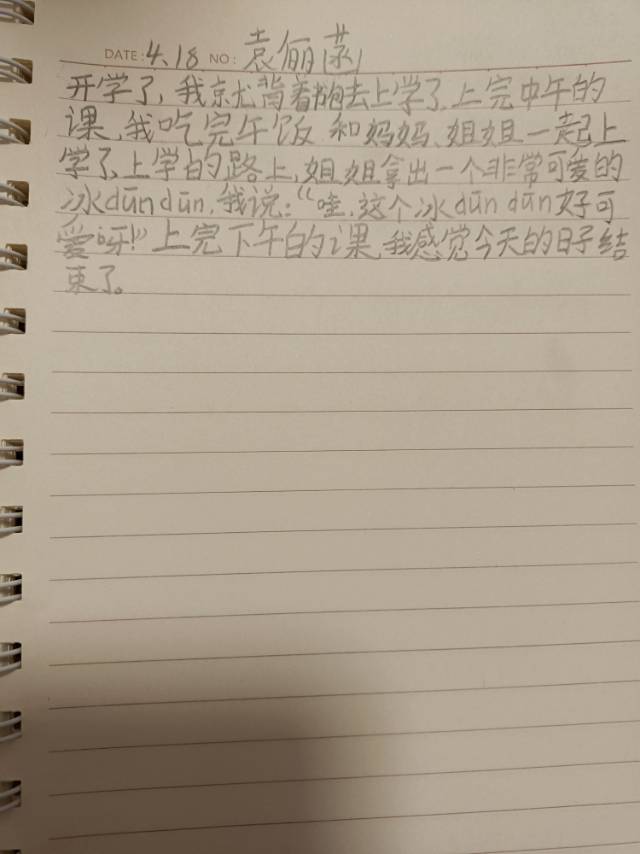 DATE: 4.18 NO: 袁俪菡
开学了,我就背着书包去上学了。上完中午的
课,我吃完午饭和妈妈、姐姐一起上
学了。上学的路上,姐姐拿出一个非常可爱的
冰dūn dūn,我说:“哇,这个冰dūn dūn好可
爱呀!”上完下午的课,我感觉今天的日子结
束了。